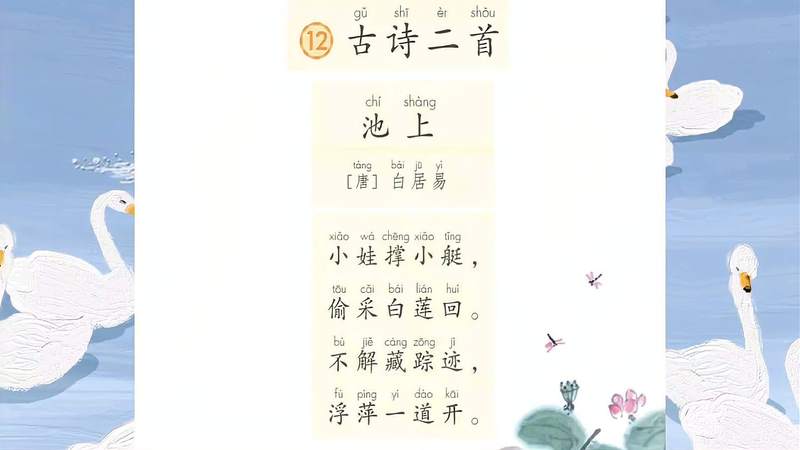 gǔ shī èr shǒu
12 古诗二首
chí shàng
池上
táng bái jū yì
[唐] 白居易
xiǎo wá chēng xiǎo tǐng
小娃撑小艇，
tōu cǎi bái lián huí
偷采白莲回。
bù jiě cáng zōng jì
不解藏踪迹，
fú píng yí dào kāi
浮萍一道开。